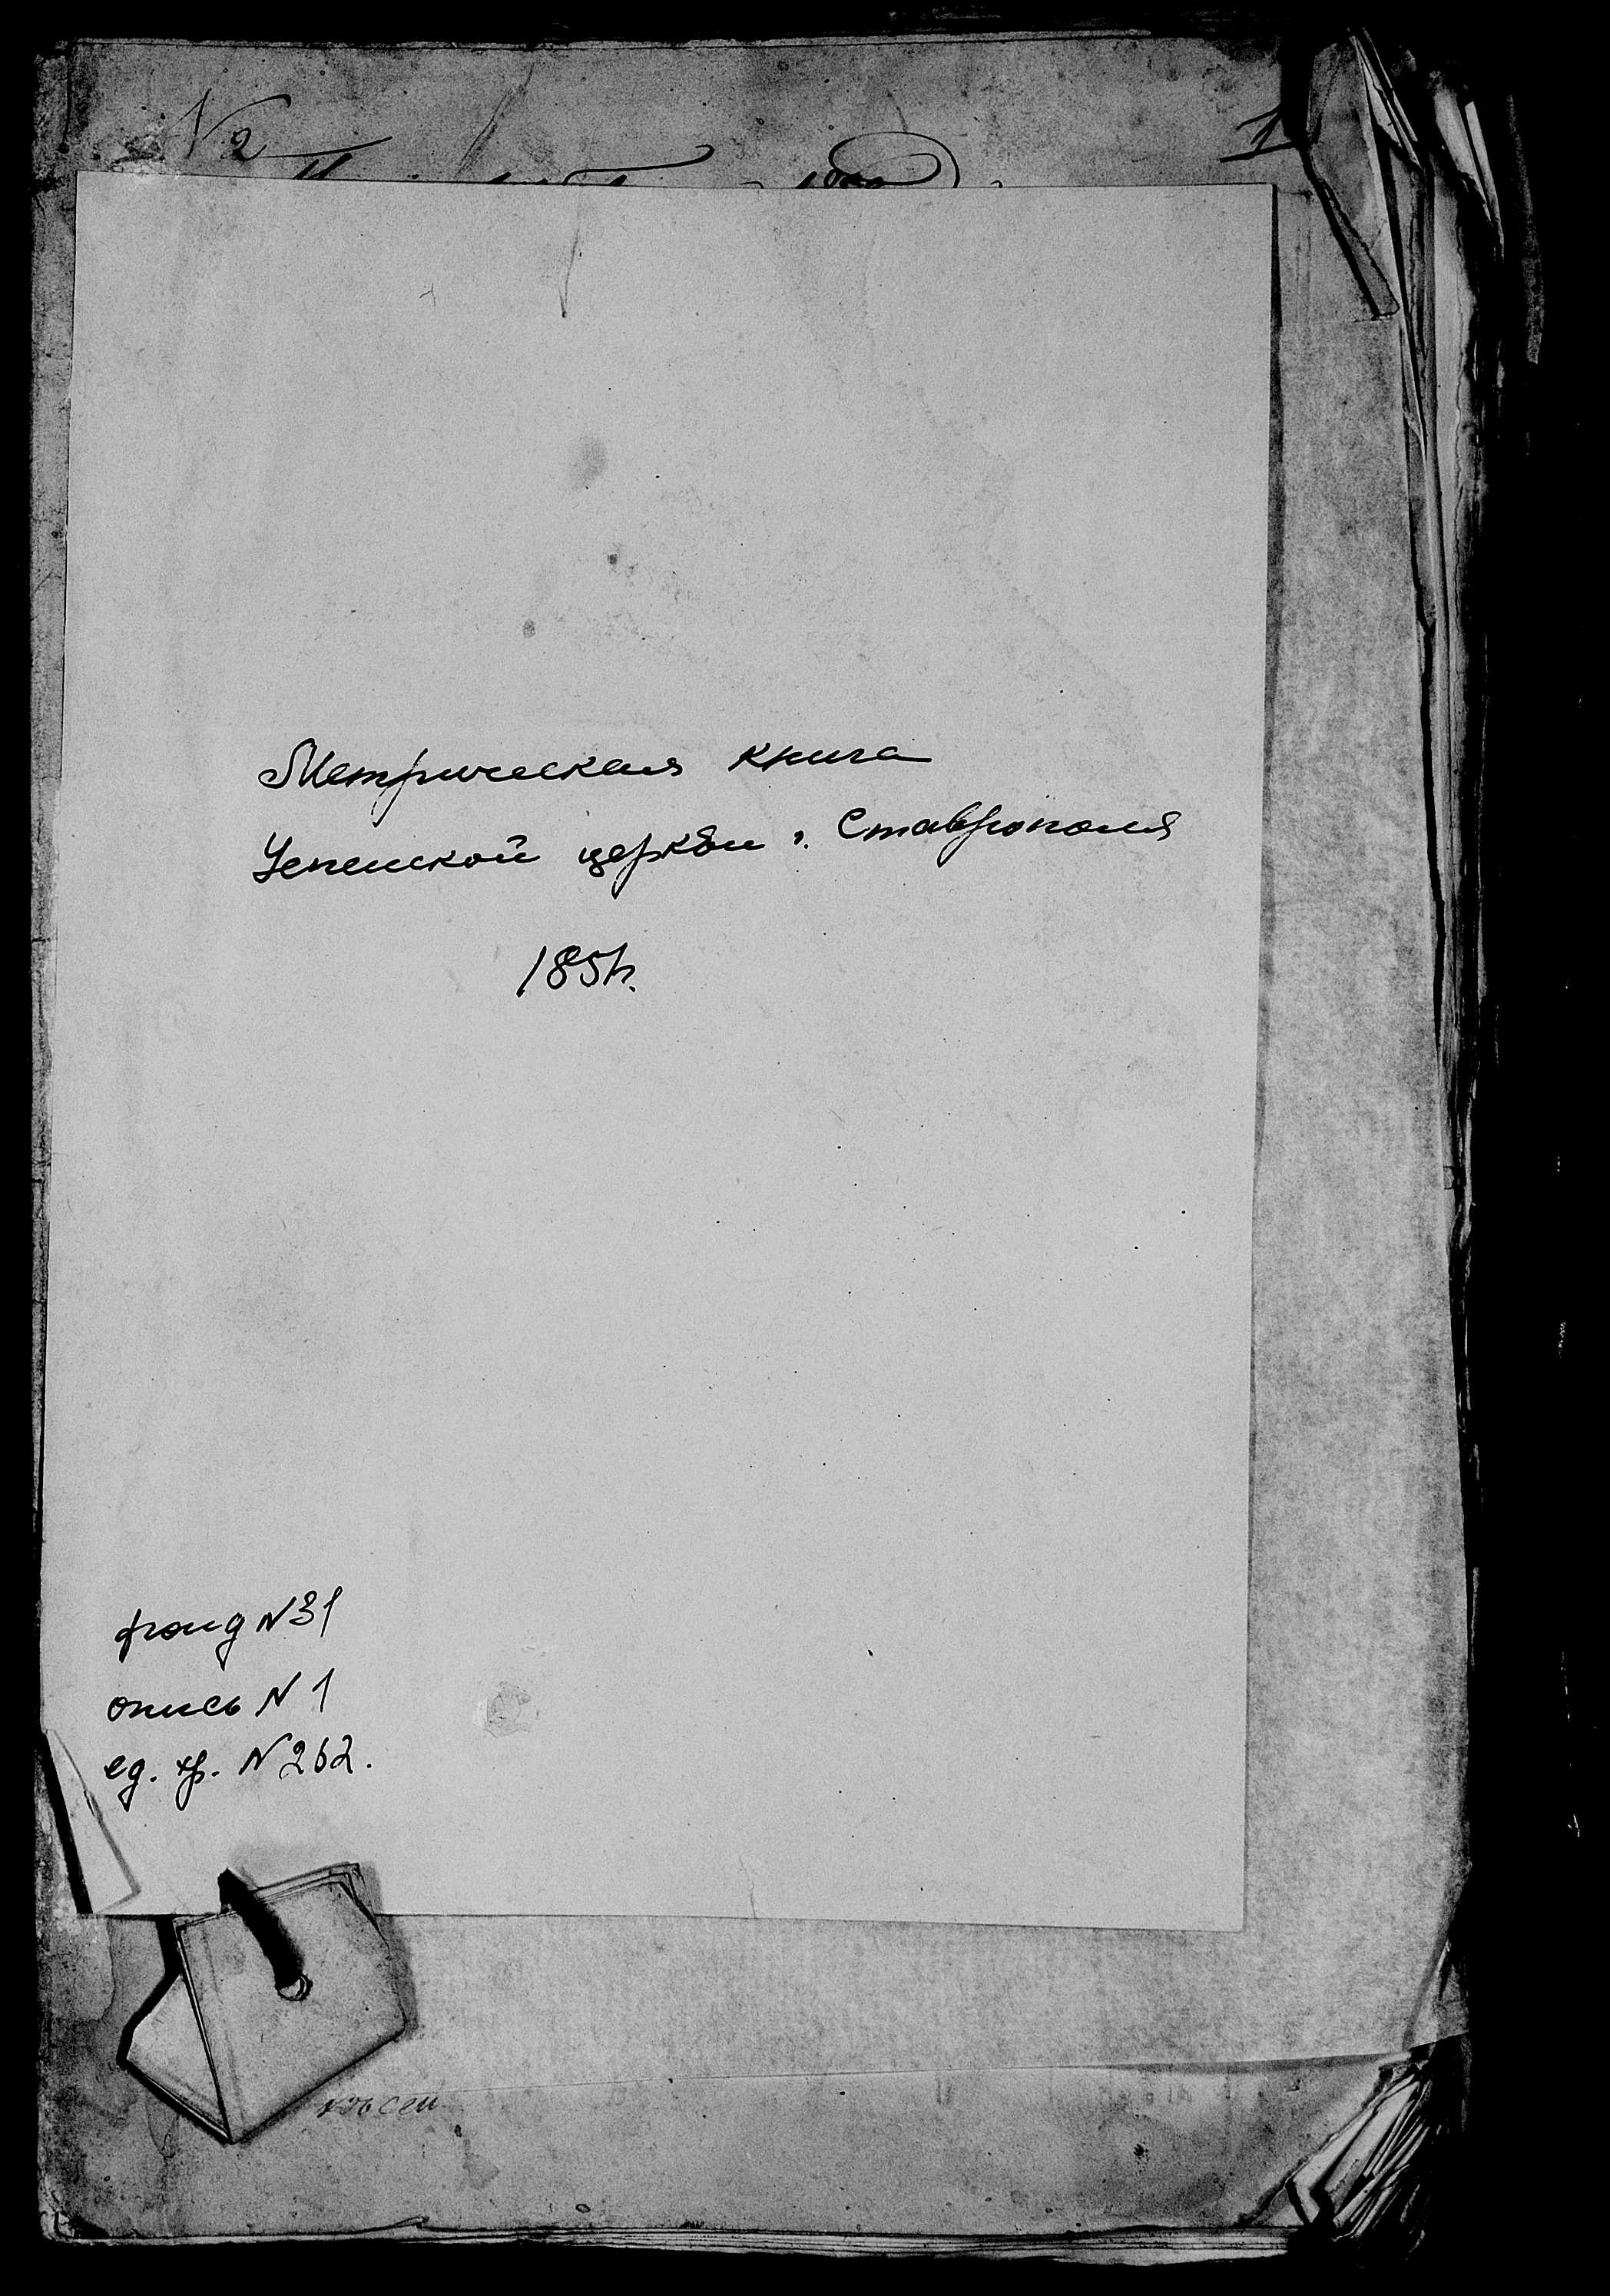 N 2
1
Метрическая книга
Успенской церкви г. Ставрополя
1851г.
фонд N31
опись N 1
ед. хр. N 262.